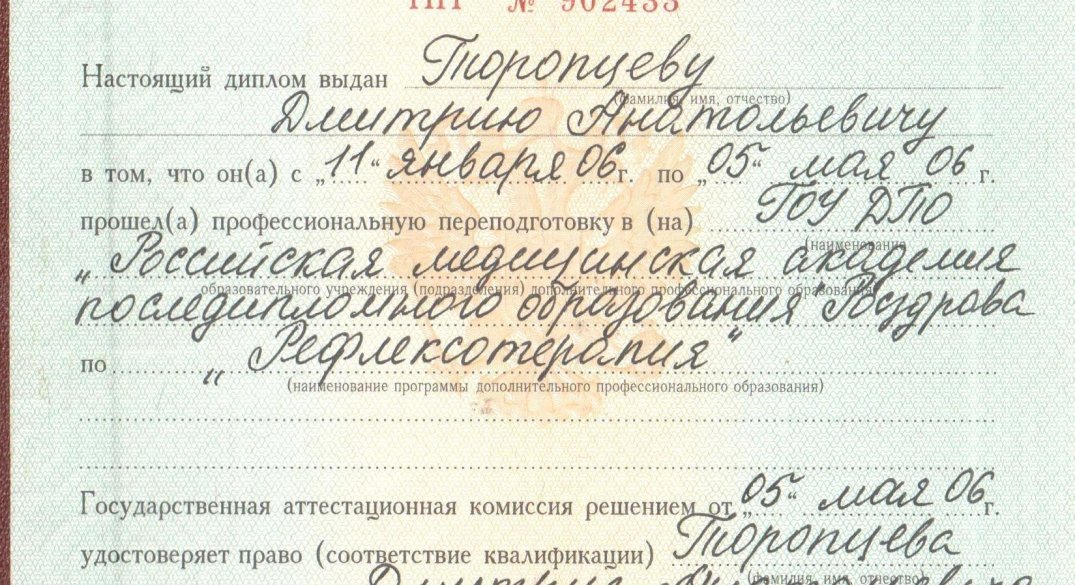 ПП № 902433
Настоящий диплом выдан Торопцеву
(фамилия, имя, отчество)
Дмитрию Анатольевичу
в том, что он(а) с „11“ января 06 г. по „05“ мая 06 г.
прошел(а) профессиональную переподготовку в (на) ГОУ ДПО
(наименование
„Российская медицинская академия
образовательного учреждения (подразделения) дополнительного профессионального образования)
последипломного образования Росздрава
по „Рефлексотерапия“
(наименование программы дополнительного профессионального образования)
Государственная аттестационная комиссия решением от „05“ мая 06 г.
удостоверяет право (соответствие квалификации) Торопцева
(фамилия, имя, отчество)
Дмитрия